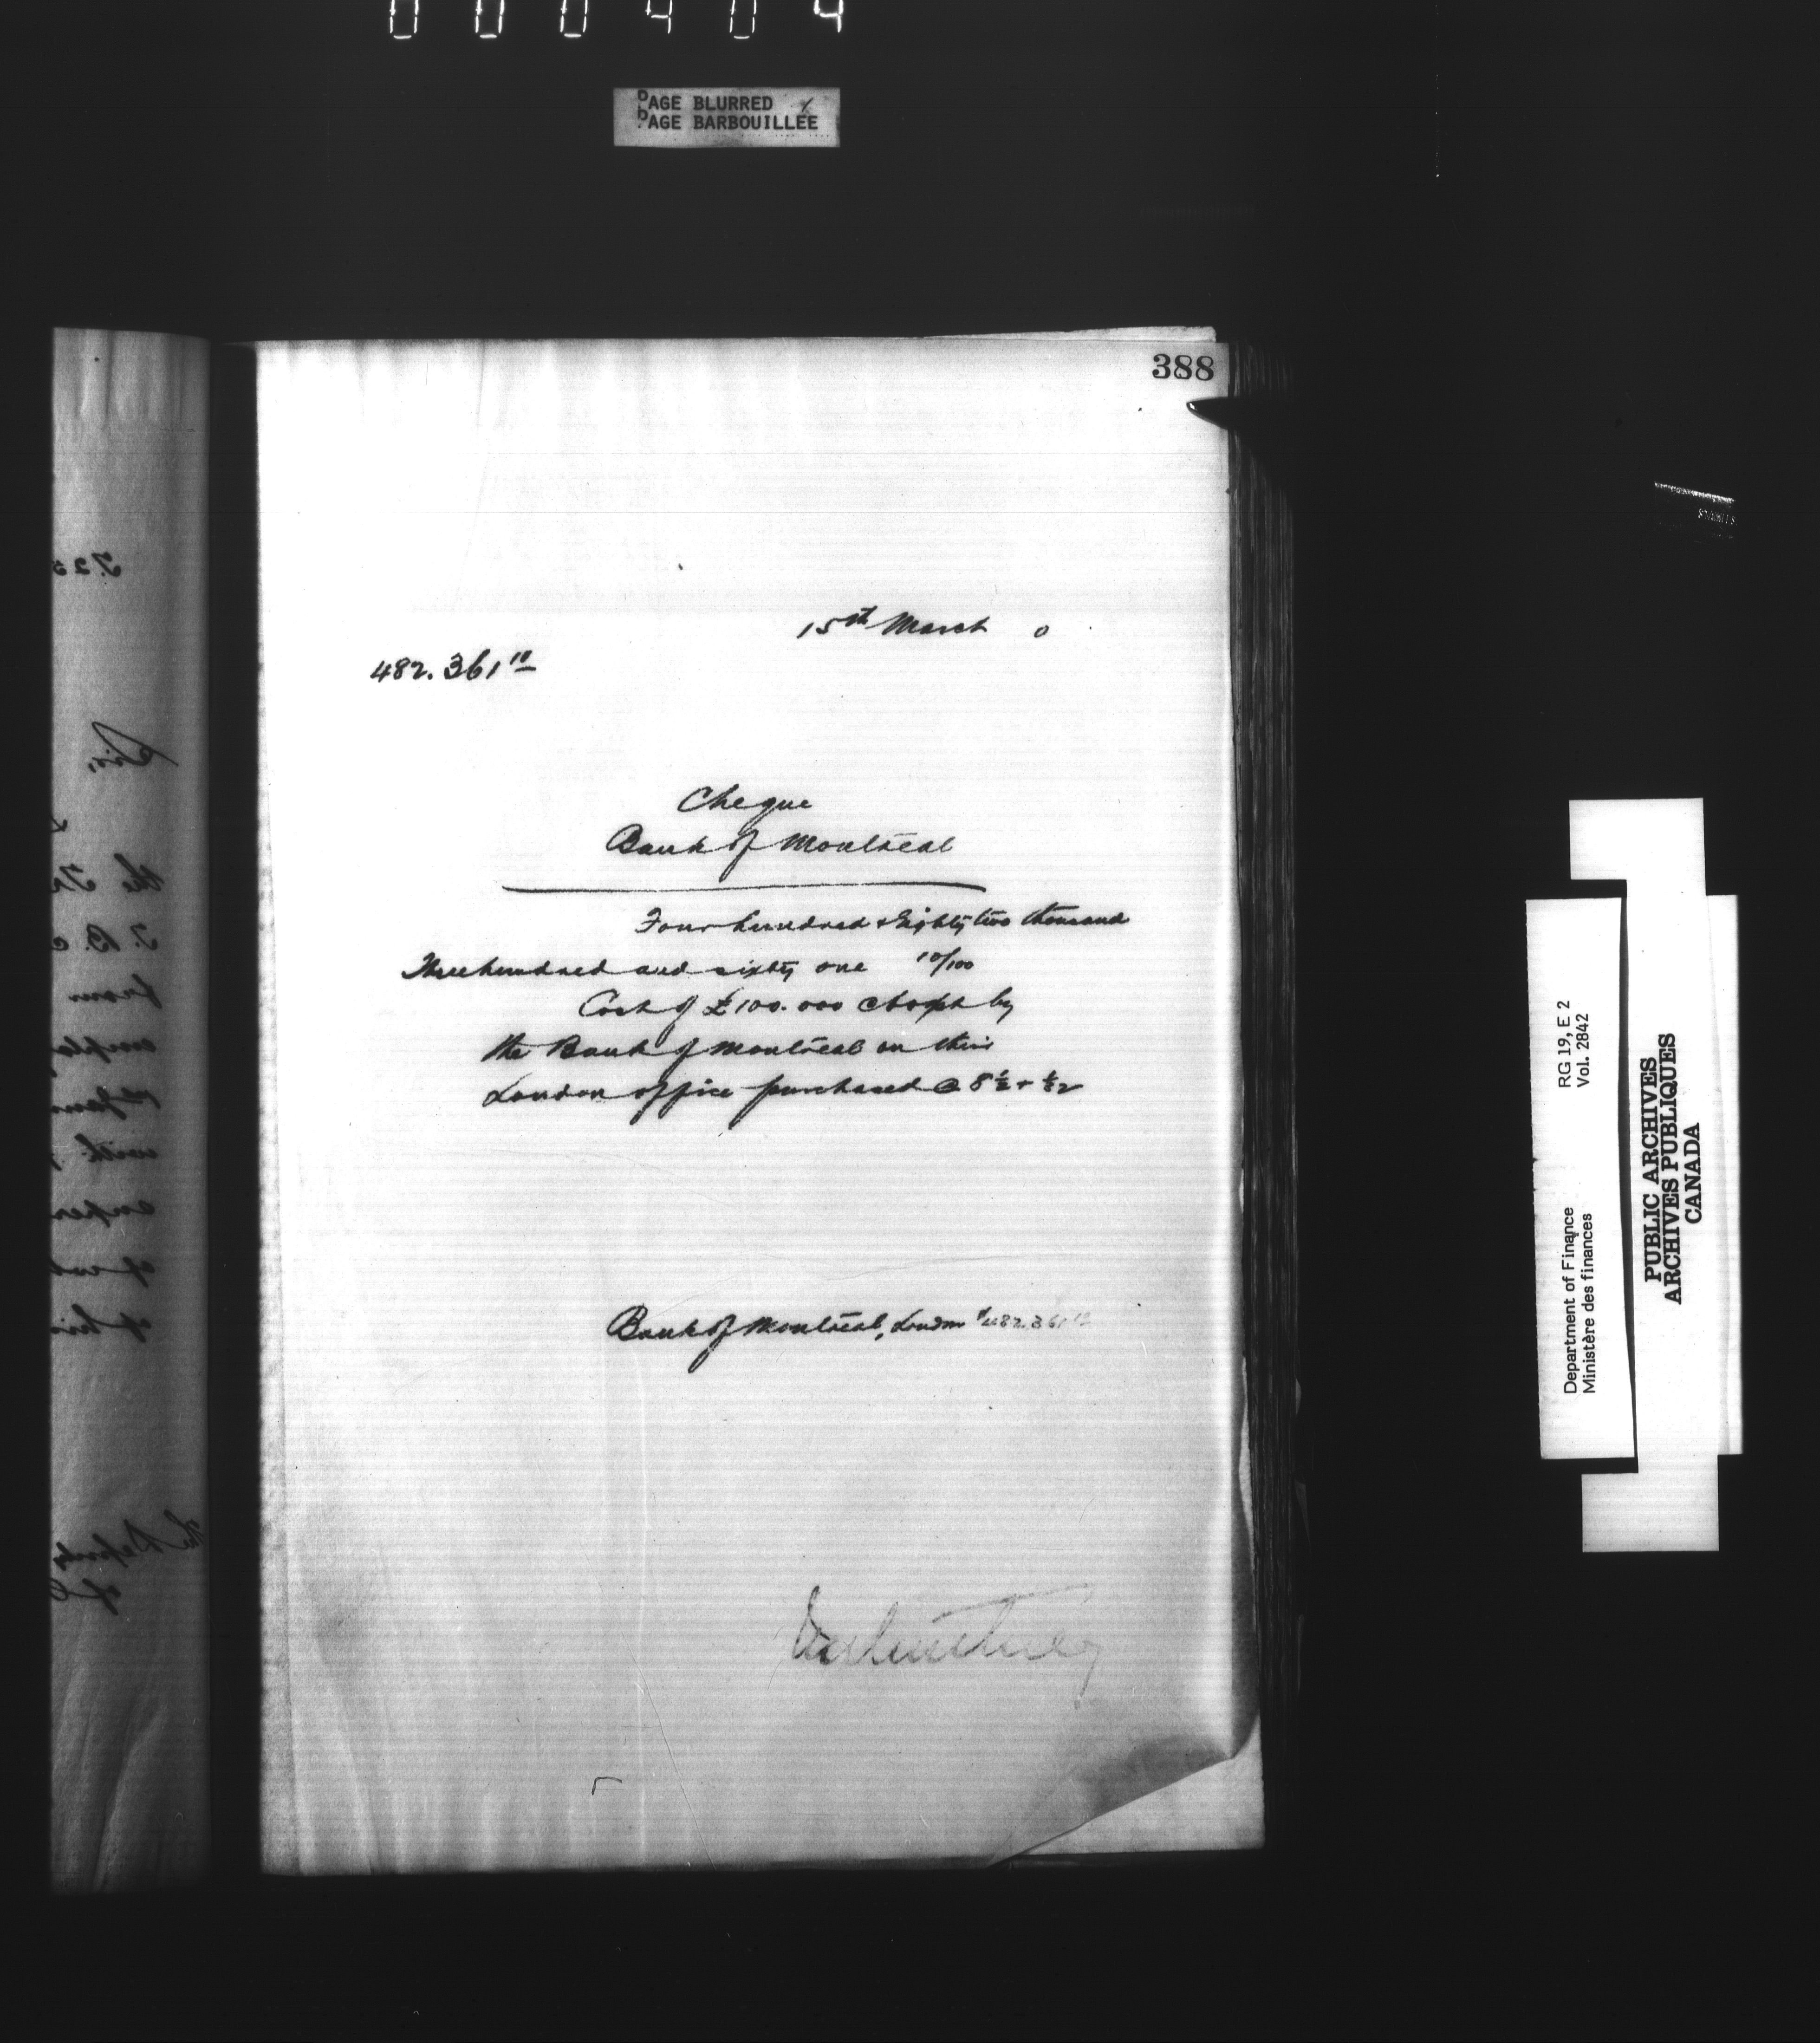 000404
PAGE BLURRED
PAGE BARBOUILLÉE
388
15th March 0
482.361 10
Cheque
Bank of Montreal
Four hundred & Eighty two thousand
Three hundred and sixty one 10/100
Cost of £100.000 by
the Bank of Montreal on their
London office purchased @ 8½ +
Bank of Montreal, London $482.361 10
T. 25
Sir,
the
T. B. C
from
with
of his
The Deputy
of
RG 19, E 2
Vol. 2842
Department of Finance
Ministère des finances
PUBLIC ARCHIVES
ARCHIVES PUBLIQUES
CANADA